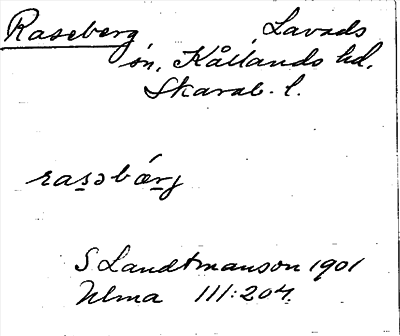 Raseberg Lavads
sn, Kållands hd,
Skarab. l.
rasəbærj
S Landtmanson 1901
Ulma 111:204.